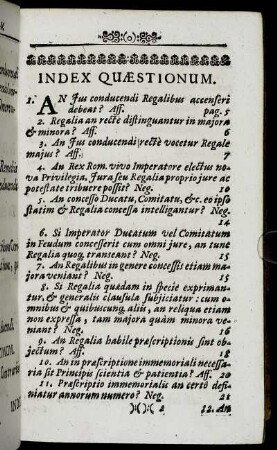 INDEX QUÆSTIONUM.
1. AN Jus conducendi Regalibus accenseri
debeat? Aff. pag. 5
2. Regalia an rectè distinguantur in majora
& minora? Aff. 6
3. An Jus conducendi rectè vocetur Regale
majus? Aff. 7
4. An Rex Rom. vivo Imperatore electus no-
va Privilegia, Jura seu Regalia proprio jure ac
potestate tribuere possit? Neg. 10
5. An concesso Ducatu, Comitatu, &c. eo ipso
statim & Regalia concessa intelligantur? Neg.
14
6. Si Imperator Ducatum vel Comitatum
in Feudum concesserit cum omni jure, an tunc
Regalia quoq; transeant? Neg. 15
7. An Regalibus in genere concessis etiam ma-
jora veniant? Neg. 15
8. Si Regalia quædam in specie expriman-
tur, & generalis clausula subjiciatur: cum o-
mnibus & quibuscunq; aliis, an reliqua etiam
non expressa, tam majora quàm minora ve-
niant? Neg. 16
9. An Regalia habile præscriptionis sint ob-
jectum? Aff. 18
10. An in præscriptione immemoriali necessa-
ria sit Principis scientia & patientia? Aff. 20
11. Præscriptio immemorialis an certò defi-
niatur annorum numero? Neg. 21
2 12. An